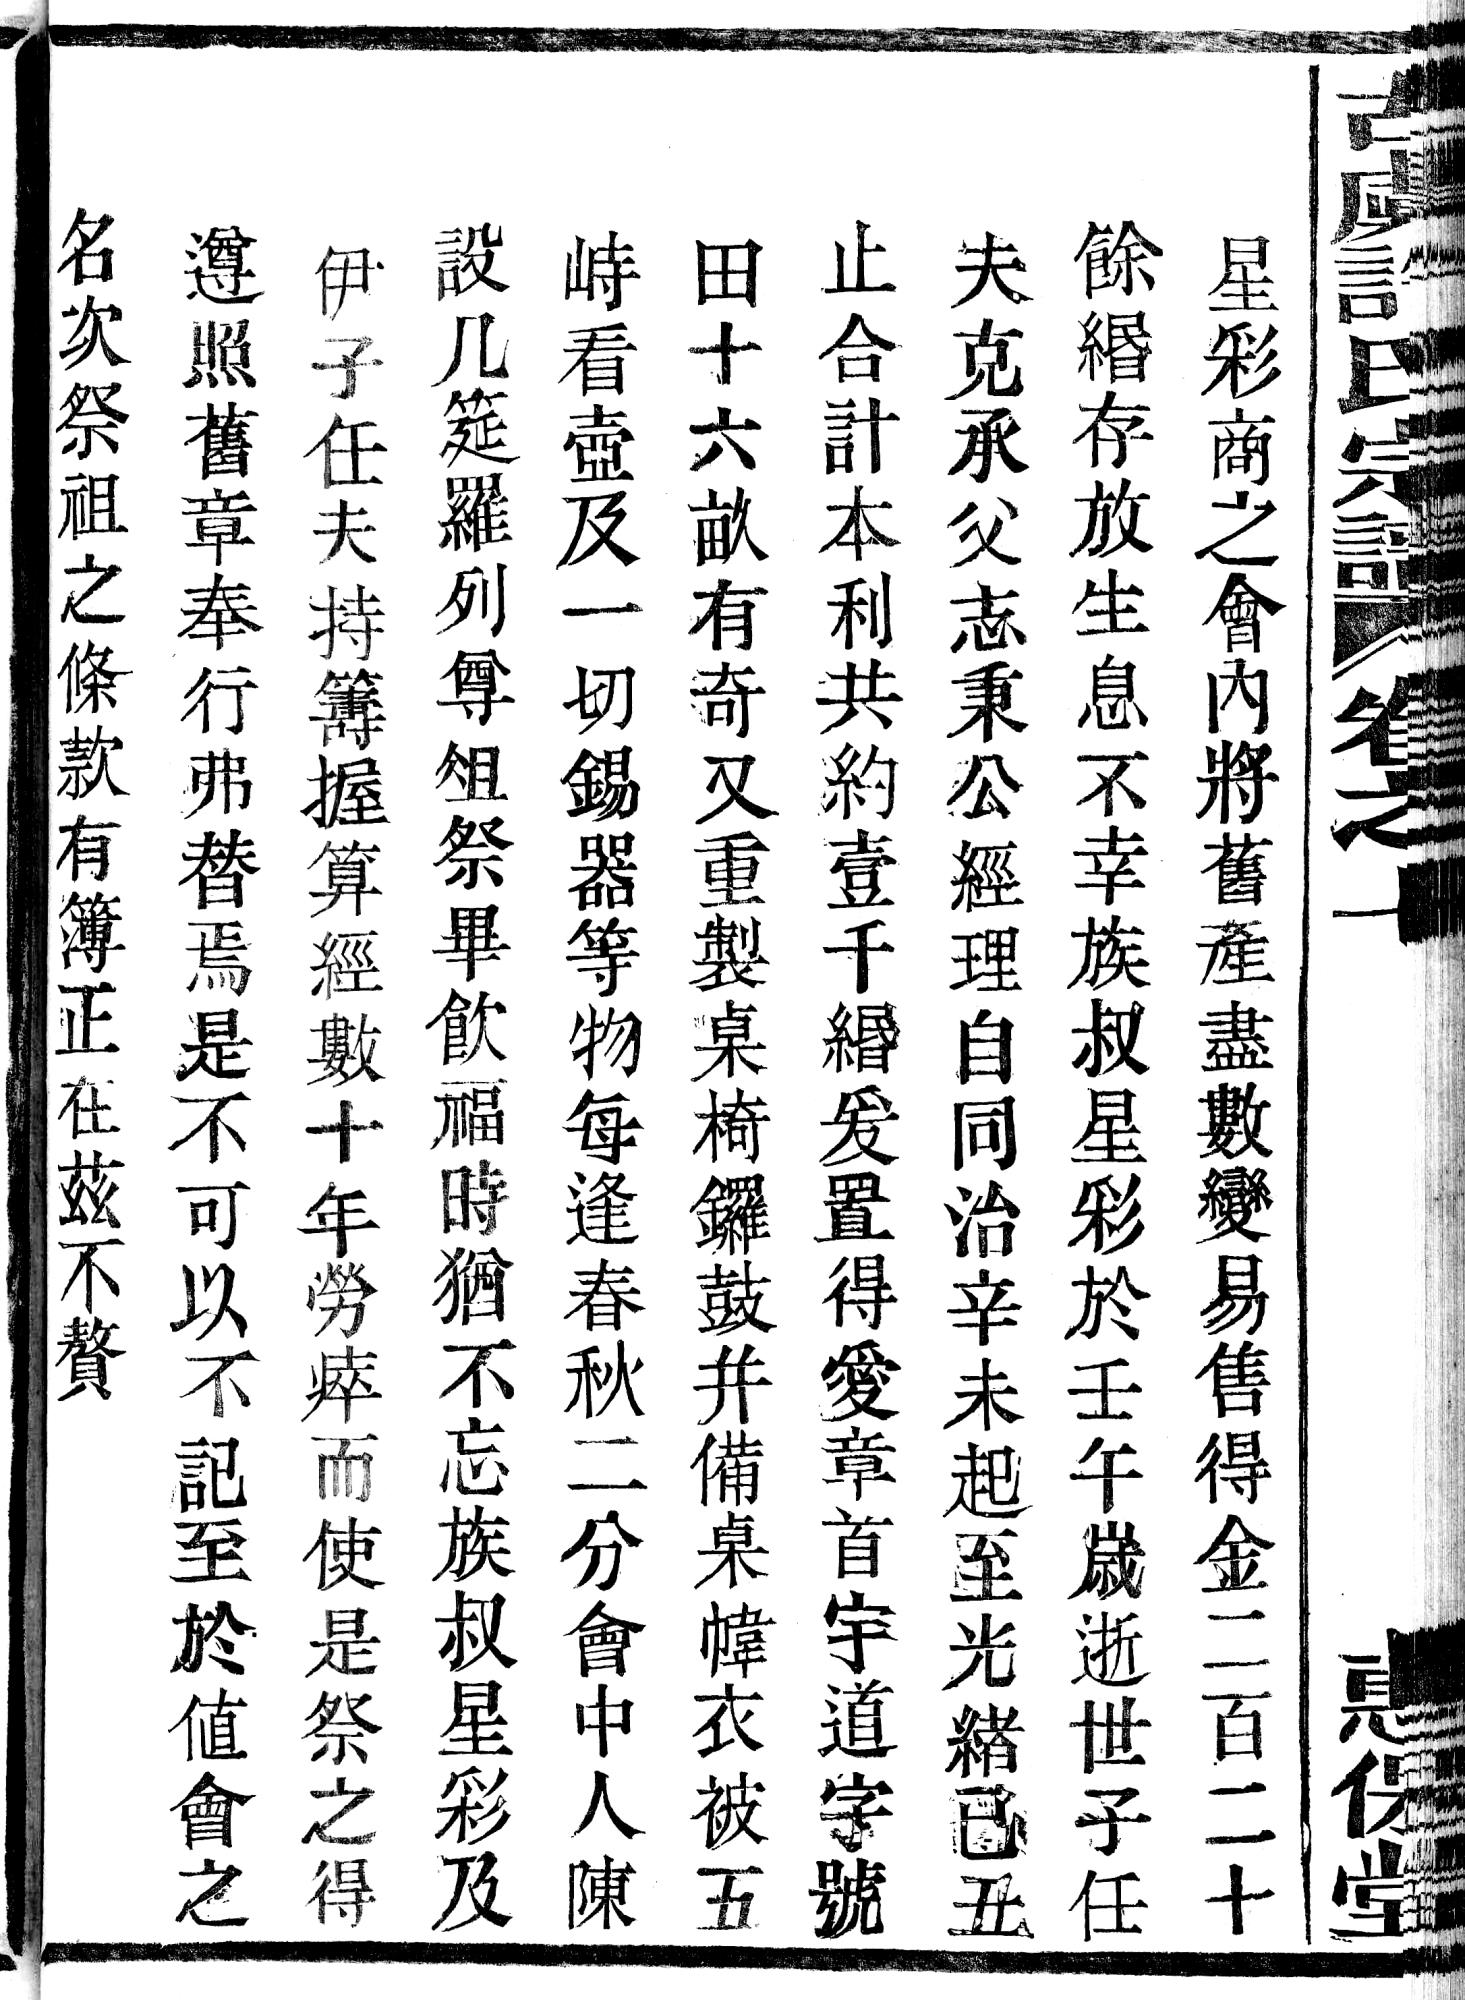 星彩商之會內將舊產盡數變易售得金二百二十
餘緡存放生息不幸族叔星彩於壬午歲逝世子任
夫克承父志秉公經理自同治辛未起至光緒己丑
止合計本利共約壹千緡爰置得愛章首宇道字號
田十六畝有奇又重製桌椅鑼鼓并備桌幃衣被五
峙看壺及一切錫器等物每逢春秋二分會中人陳
設几筵羅列尊俎祭畢飲福時猶不忘族叔星彩及
伊子任夫持籌握算經數十年勞瘁而使是祭之得
遵照舊章奉行弗替焉是不可以不記至於值會之
名次祭祖之條款有簿正在茲不贅
氏宗譜 卷之一
堂